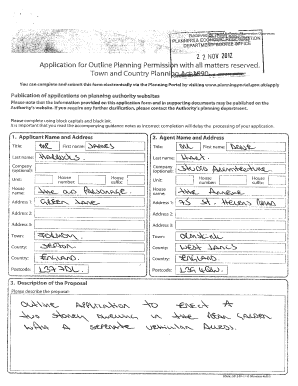 PLANNING & ECONOMIC REGENERATION
DEPARTMENT BOOTLE OFFICE
22 NOV 2012
Application for Outline Planning Permission with all matters reserved.
Town and Country Planning Act 1990
You can complete and submit this form electronically via the Planning Portal by visiting www.planningportal.gov.uk/apply
Publication of applications on planning authority websites
Please note that the information provided on this application form and in supporting documents may be published on the
Authority's website. If you require any further clarification, please contact the Authority's planning department.
Please complete using block capitals and black ink.
It is important that you read the accompanying guidance notes as incorrect completion will delay the processing of your application.
1. Applicant Name and Address
Title: MR First name: JAMES
Last name:
Company
(optional):
Unit: House
number: House
suffix:
House
name: THE OLD PARSONAGE
Address 1: GREEN LANE
Address 2:
Address 3:
Town: FORMBY
County: SEFTON
Country: ENGLAND
Postcode: L37 7DL
2. Agent Name and Address
Title: MR First name: DAVE
Last name:
Company
(optional): STUDIO ARCHITECTURE
Unit: House
number: House
suffix:
House
name: THE ANNEXE
Address 1: 95 ST. HELENS ROAD
Address 2:
Address 3:
Town: ORMSKIRK
County: WEST LANCS
Country: ENGLAND
Postcode: L39 4QW
3. Description of the Proposal
Please describe the proposal:
OUTLINE APPLICATION TO ERECT A
TWO STOREY DWELLING IN THE REAR GARDEN
WITH A SEPARATE VEHICULAR ACCESS.